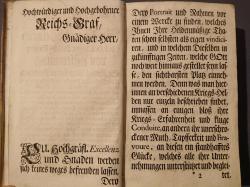 Hochwürdiger und Hochgebohrner
Reichs-Graf,
Gnädiger Herr,
Eu. Hochgräfl. Excellenz
und Gnaden werden
sich keines weges befremden lassen,
Dero
Dero Portrait und Nahmen vor
einem Wercke zu finden, welches
Ihnen Ihre Heldenmäßige Tha-
ten schon selbsten als eigen vindici-
ren, und in welchem Dieselben in
zukünfftigen Zeiten, welche GOtt
noch weit hinnaus gestellet seyn las-
se, den sichtbarsten Platz einneh-
men werden. Denn was man hier-
innen an verschiedenen Kriegs-Hel-
den nur eintzeln beschrieben findet,
müssen an einigen bloß ihre
Kriegs-Erfahrenheit und kluge
Conduite, an andern ihr unerschro-
ckener Muth, Tapfferkeit und Bra-
voure, an diesen ein standhafftes
Glücke, welches alle ihre Unter-
nehmungen unterstützet und beglei-
2
tet.